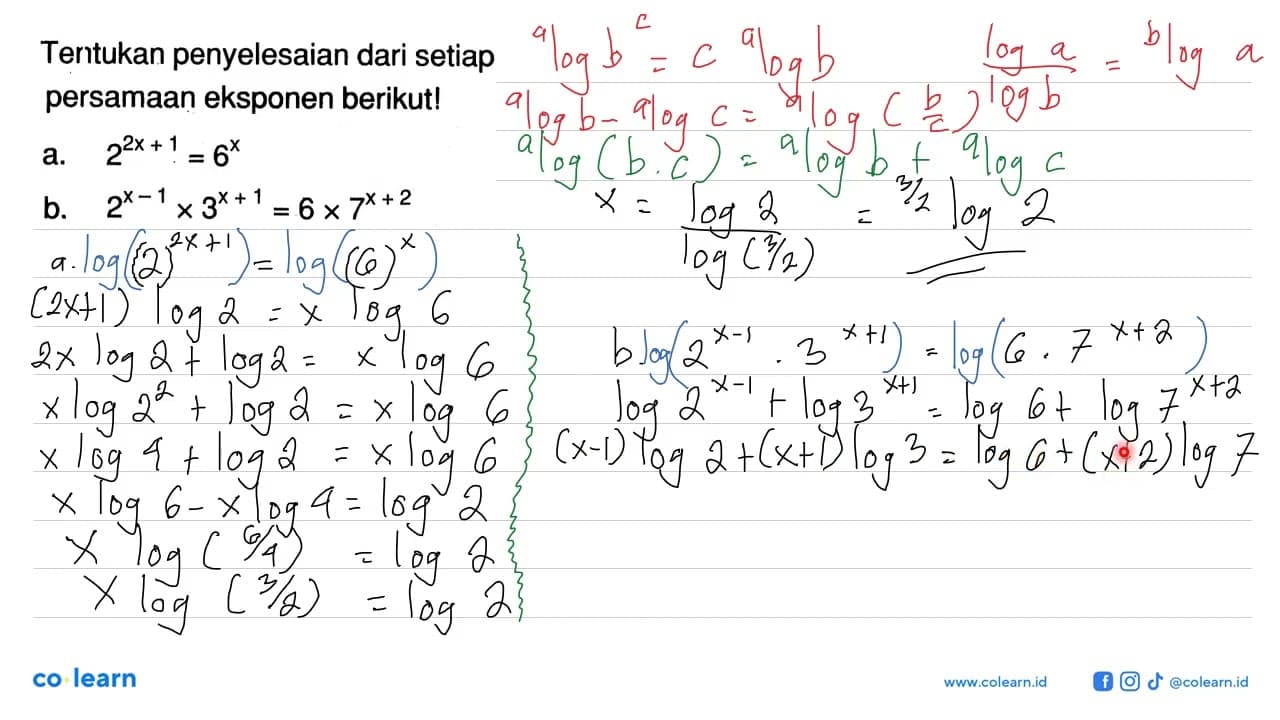 Tentukan penyelesaian dari setiap
persamaan eksponen berikut!
a. 2^(2x + 1) = 6^x
b. 2^(x – 1) × 3^(x + 1) = 6 × 7^(x + 2)
ᵃlog b^c = c ᵃlog b
log a / log b = ᵇlog a
ᵃlog b - ᵃlog c = ᵃlog (b/c)
ᵃlog (b.c) = ᵃlog b + ᵃlog c
a. log((2)^(2x+1)) = log((6)^x)
(2x+1) log 2 = x log 6
2x log 2 + log 2 = x log 6
x log 2² + log 2 = x log 6
x log 4 + log 2 = x log 6
x log 6 - x log 4 = log 2
x log (6/4) = log 2
x log (3/2) = log 2
x = log 2 / log (3/2) = ^(3/2)log 2
b log(2^(x-1) . 3^(x+1)) = log(6 . 7^(x+2))
log 2^(x-1) + log 3^(x+1) = log 6 + log 7^(x+2)
(x-1) log 2 + (x+1) log 3 = log 6 + (x+2) log 7
co learn
www.colearn.id
@colearn.id